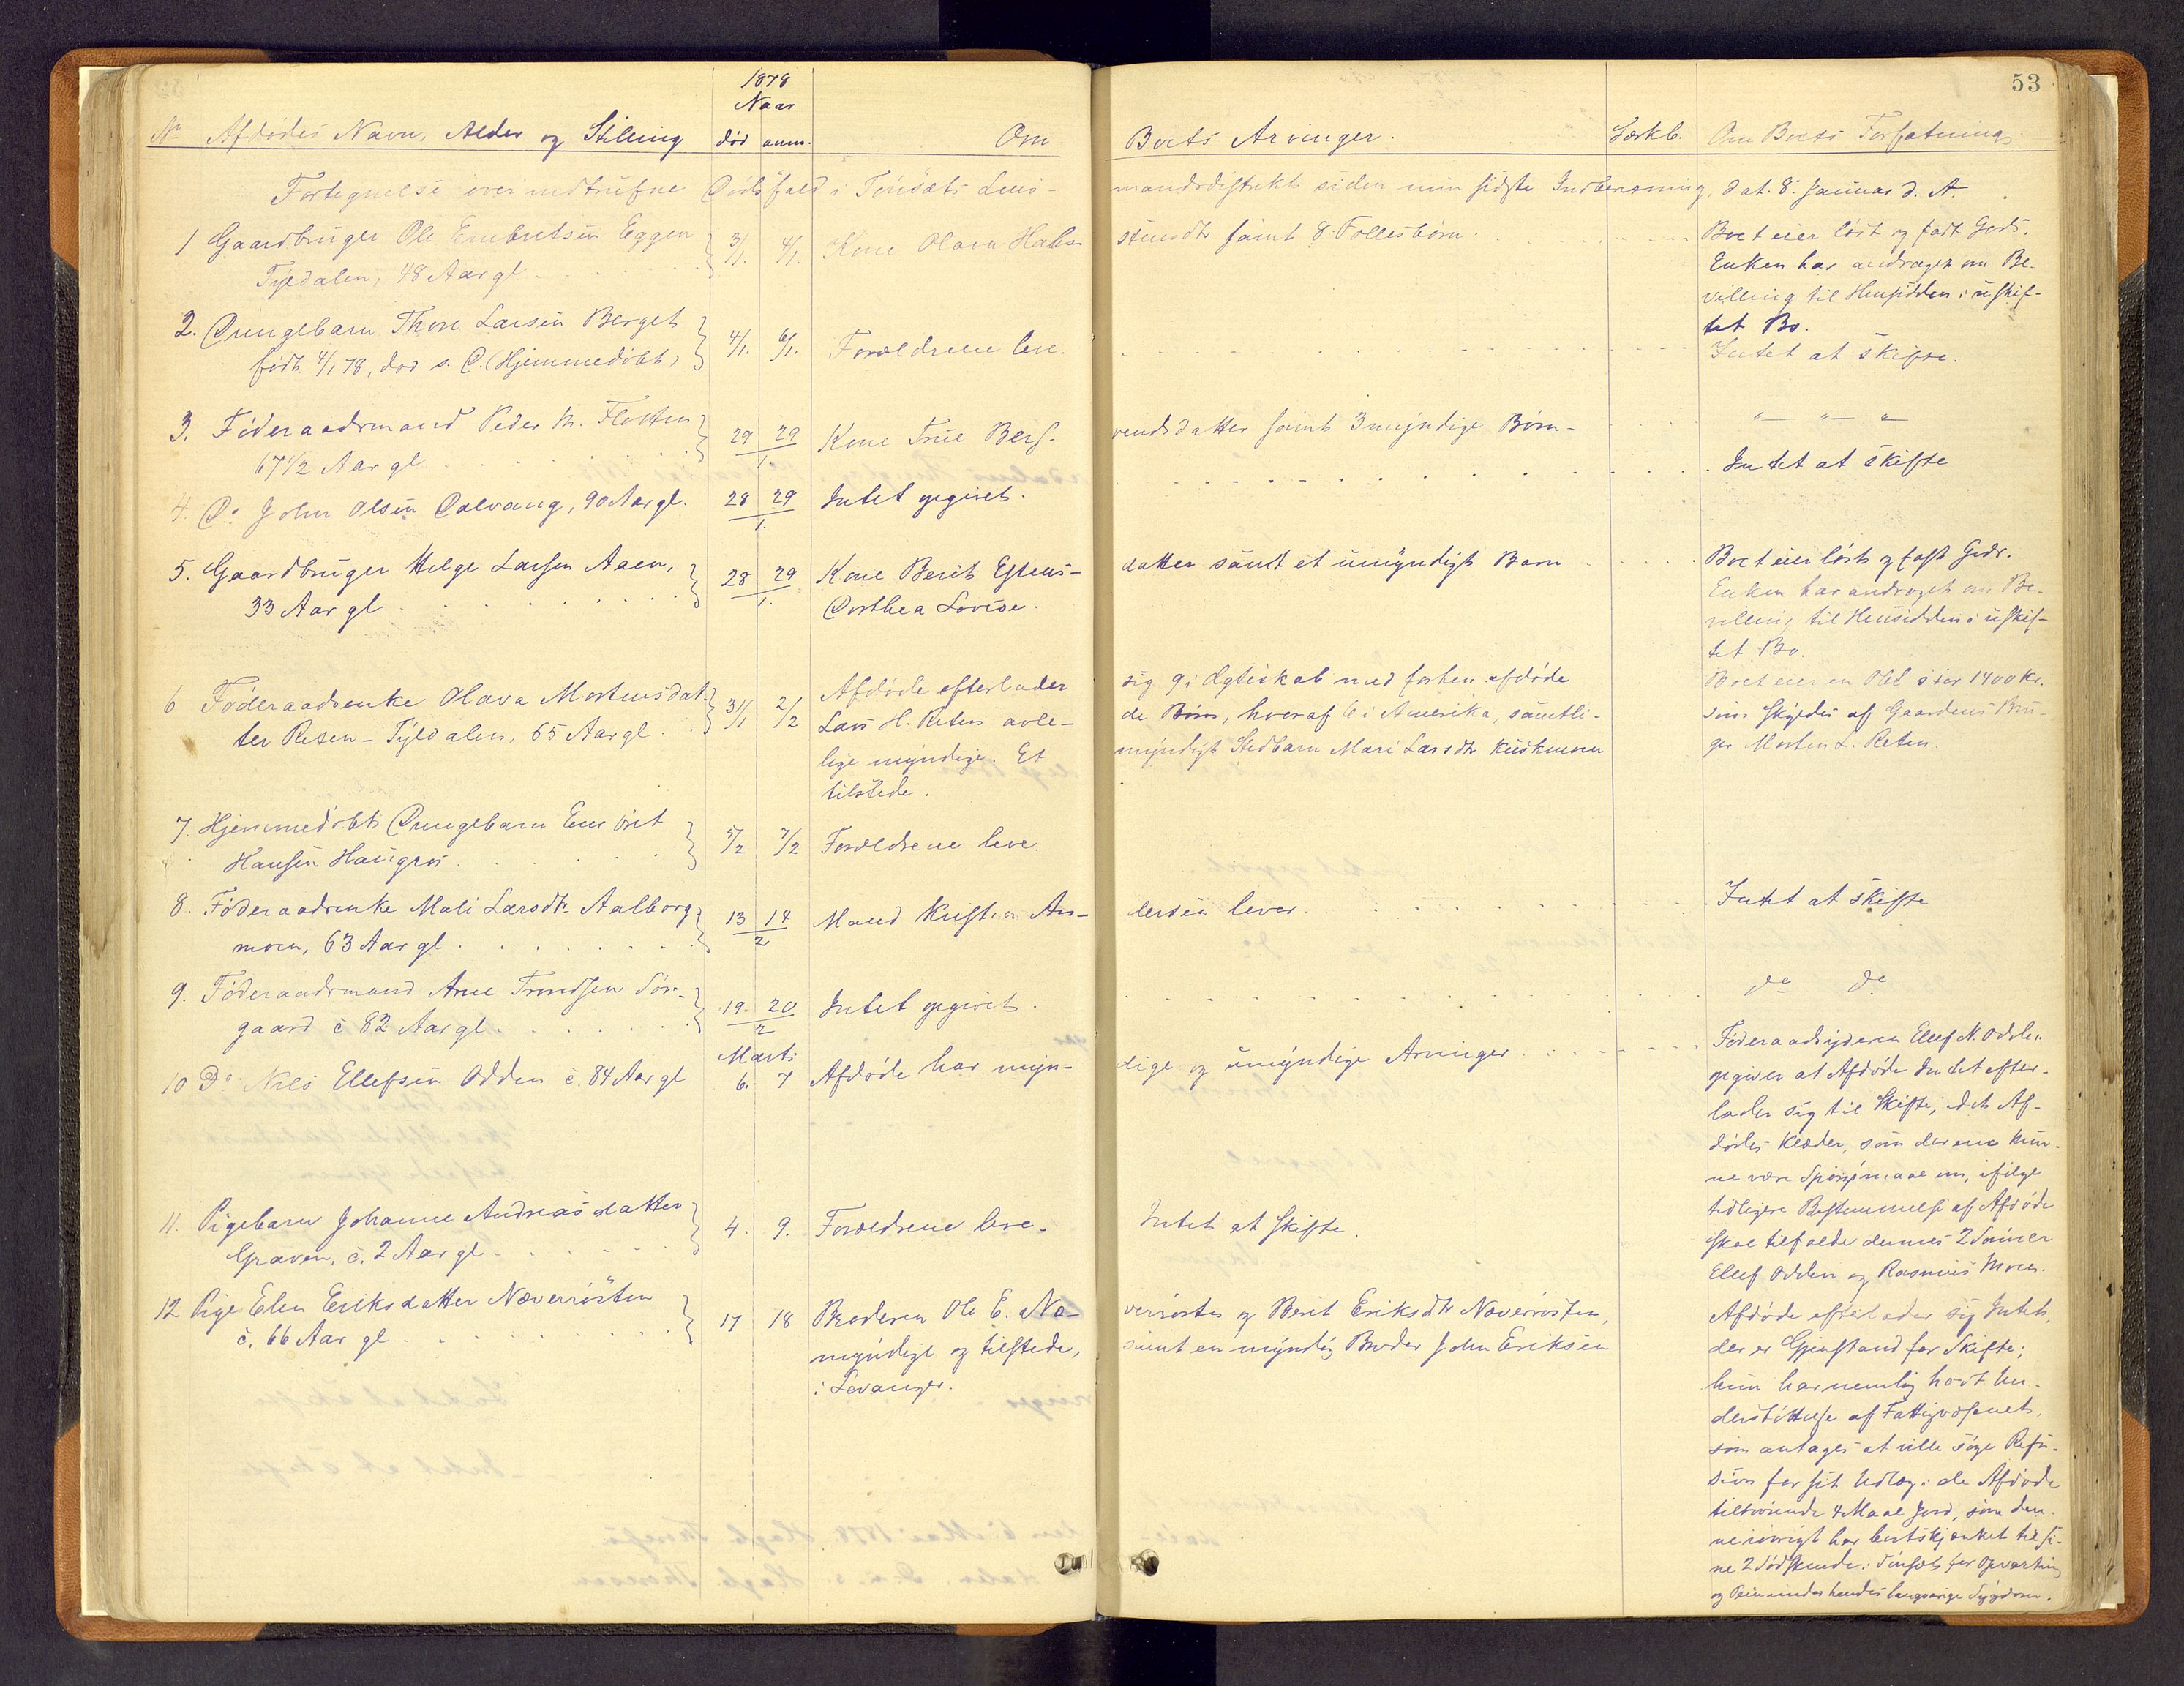 53
1878
Naar
No Afdødes Navn, Alder og Stilling død anm. Om Boets Arvinger. Særkb. Om Boets Forfatning
Fortegnelse over indtrufne Dødsfald i Tønsæts Lens-mandsdistrikt siden min sidste Indberetning, dat. 8. Januar d. A.
1 Gaardbruger Ole Embretsen Eggen 3/1. 4/1. Kone Olava Hal- stensdtr samt 8 Fællesbørn. Boet eier løst og fast Gods.
Tyldalen, 48 Aar gl. Enken har andraget om Be-
villing til Hensidden i uskif-
tet Bo.
2. Drengebarn Thore Larsen Berget 4/1. 6/1. Forældrene leve. Intet at skifte.
født 4/1 78, død s. D. (Hjemmedøbt)
3. Føderaadsmand Peder M. Flotten 29 29 Kone True Bers- vendsdatter samt 3 myndige Børn - „— „— „
67 1/2 Aar gl. 1.
4. Do John Olsen Dalvang, 90 Aar gl. 28 29 Intet opgivet. Intet at skifte
1.
5. Gaardbruger Helge Larsen Aaen, 28 29 Kone Berit Estens- datter samt et umyndigt Barn Boet eier løst og fast Gods.
33 Aar gl. 1. Dorthea Lovise. Enken har andraget om Be-
villing til Hensidden i uskif-
tet Bo.
6 Føderaadsenke Olava Mortensdat- 31/1 2/2 Afdøde efterlader sig 9 i Ægteskab med forhen afdøde Boet eier en Obl. stor 1400 Kr.
ter Reten - Tyldalen, 65 Aar gl. Lars H. Reten avle- de Børn, hvoraf 6 i Amerika, samtli- som skyldes af Gaardens Bru-
lige myndige. Et myndigt Stedbarn Mari Larsdtr Kuskmoen ger Morten L. Reten.
tilstede.
7. Hjemmedøbt Drengebarn Embret 5/2 7/2 Forældrene leve.
Hansen Haugros
8. Føderaadsenke Mali Larsdtr Aalborg 13 14 Mand Kristian An- dersen lever. Intet at skifte
moen, 63 Aar gl. 2
9. Føderaadsmand Arne Trondsen Sør- 19. 20 Intet opgivet. do do
gaard c. 82 Aar gl. 2
Marts
10 Do Nils Ellefsen Odden c. 84 Aar gl 6. 7 Afdøde har myn- dige og umyndige Arvinger. Føderaadsyderen Ellef N. Odden
opgiver at Afdøde Intet efter-
lader sig til Skifte, idet Af-
dødes Klæder, som der ene kun-
ne være Spørgsmaal om, ifølge
tidligere Bestemmelse af Afdøde
skal tilfalde dennes 2 Sønner
Ellef Odden og Rasmus Moen.
11. Pigebarn Johanne Andreasdatter 4. 9. Forældrene leve. Intet at skifte.
Graven, c. 2 Aar gl.
12 Pige Elen Eriksdatter Næverrøsten 17 18 Broderen Ole E. Næ- verrøsten og Berit Eriksdtr Næverrøsten, Afdøde efterlader sig Intet,
c. 66 Aar gl. myndige og tilstede, samt en myndig Broder John Eriksen der er Gjenstand for Skifte;
i Levanger. hun har nemlig havt Un-
derstøttelse af Fattigvæsenet,
som antages at ville søge Refu-
sion for sit Udlæg i de Afdøde
tilhørende 4 Maal Jord, som den-
ne iøvrigt har bortskjænket til si-
ne 2 Sødskende i Tønsæt for Opvartning
og Pleie under hendes langvarige Sygdom.